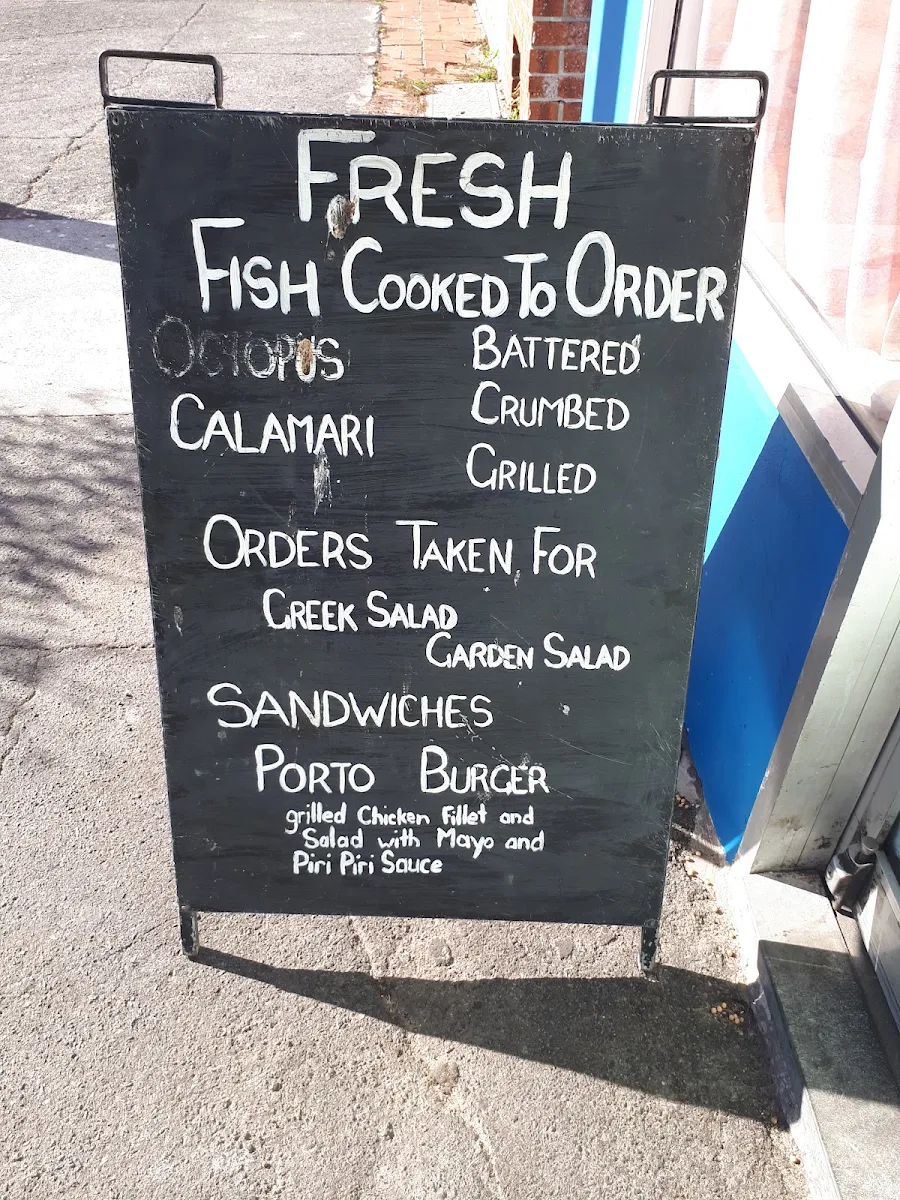 FRESH
FISH COOKED TO ORDER
OCTOPUS BATTERED
CALAMARI CRUMBED
GRILLED
ORDERS TAKEN FOR
GREEK SALAD
GARDEN SALAD
SANDWICHES
PORTO BURGER
grilled Chicken Fillet and
Salad with Mayo and
Piri Piri Sauce